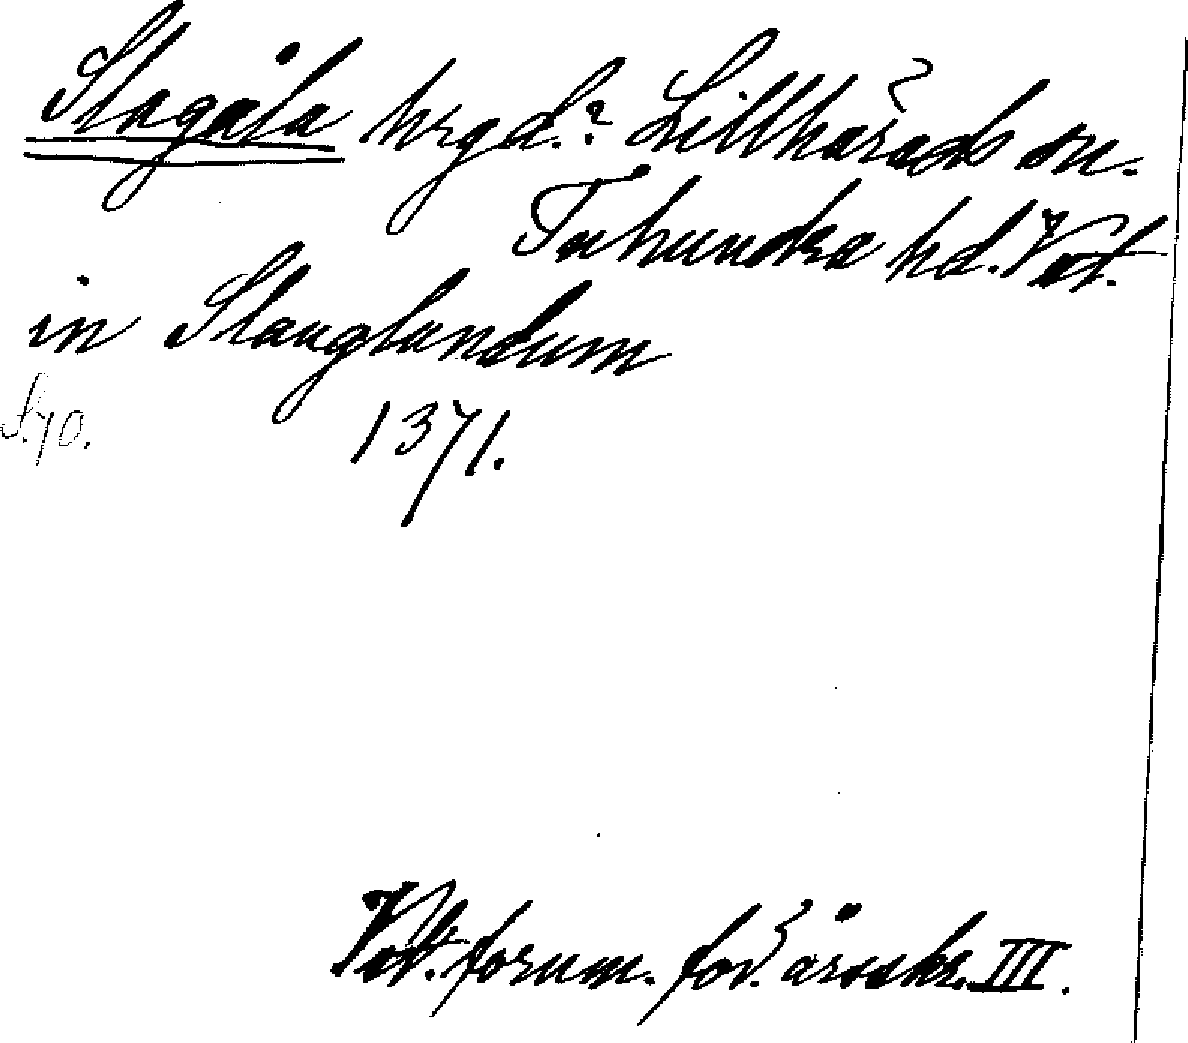 Slagåla hrgd.? Lillhärads sn.
Tuhundra hd. Vstl.
in Slauglandum
S. 70. 1371.
Vstl. fornm. för. årsskr. III.